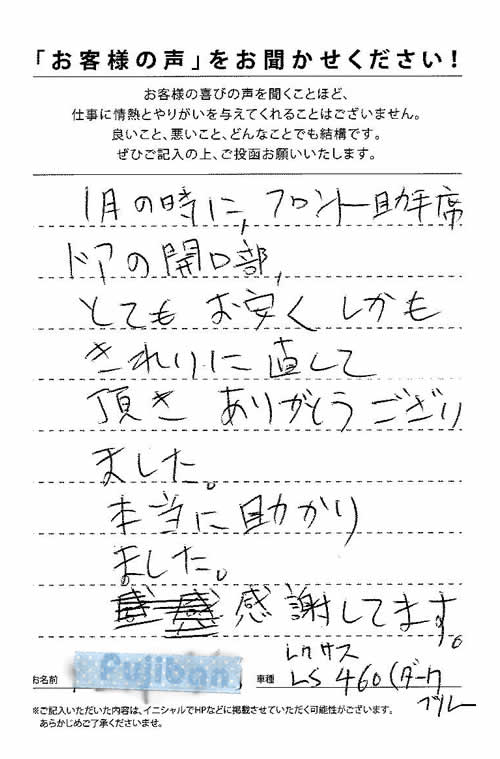 「お客様の声」をお聞かせください！
お客様の喜びの声を聞くことほど、
仕事に情熱とやりがいを与えてくれることはございません。
良いこと、悪いこと、どんなことでも結構です。
ぜひご記入の上、ご投函お願いいたします。
1月の時に、フロント助手席
ドアの開口部、
とても お安く しかも
きれいに 直して
頂き ありがとう ござい
ました。
本当に 助かり
ました。
感謝してます。
お名前
fujiban
車種
レクサス
LS 460 (ダーク
ブルー
※ご記入いただいた内容は、イニシャルでHPなどに掲載させていただく可能性がございます。
あらかじめご了承くださいませ。